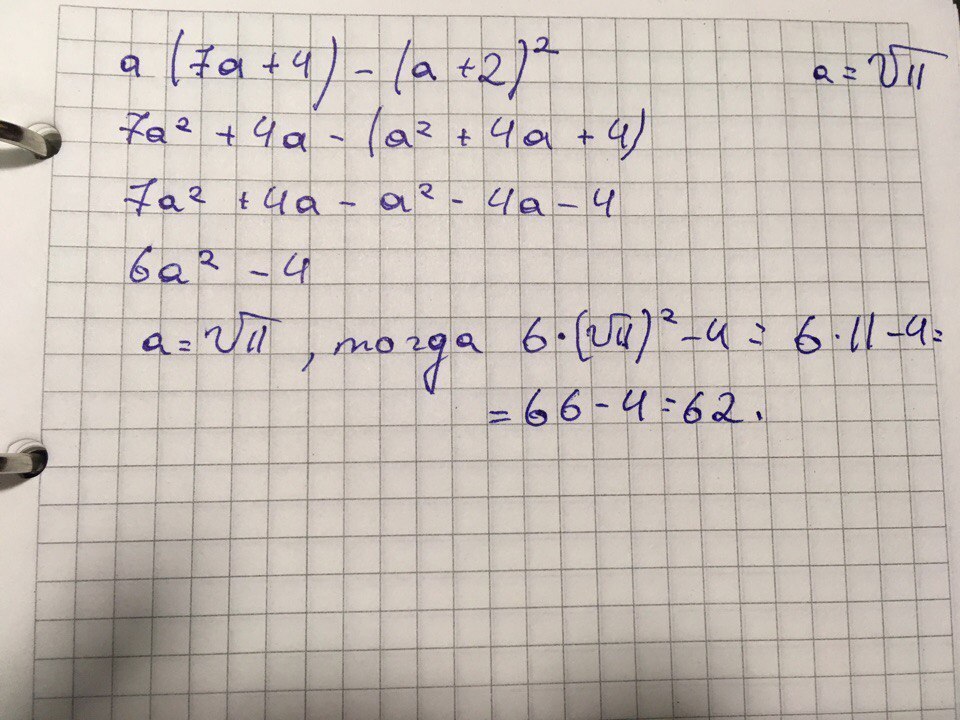 a (7a + 4) - (a + 2)² a = √11
7a² + 4a - (a² + 4a + 4)
7a² + 4a - a² - 4a - 4
6a² - 4
a = √11 , тогда 6·(√11)² - 4 = 6·11 - 4 =
= 66 - 4 = 62.